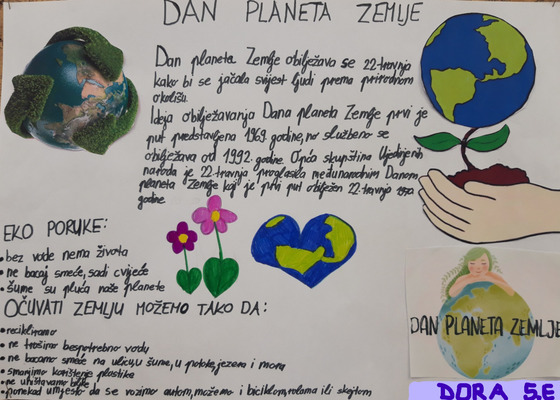 DAN PLANETA ZEMLJE
Dan planeta Zemlje obilježava se 22. travnja
kako bi se jačala svijest ljudi prema prirodnom
okolišu.
Ideja obilježavanja Dana planeta Zemlje prvi je
put predstavljena 1969. godine, no službeno se
obilježava od 1992. godine. Opća skupština Ujedinjenih
naroda je 22. travnja proglasila međunarodnim Danom
planeta Zemlje koji je prvi put obilježen 22. travnja 1970.
godine
EKO PORUKE:
• bez vode nema života
• ne bacaj smeće, sadi cvijeće
• šume su pluća naše planete
OČUVATI ZEMLJU MOŽEMO TAKO DA:
• recikliramo
• ne trošimo bespotrebno vodu
• ne bacamo smeće na ulicu, u šume, u potoke, jezera i mora
• smanjimo korištenje plastike
• ne uništavamo biljke
• ponekad umjesto da se vozimo autom, možemo i biciklom, rolama ili skejtom
DAN PLANETA ZEMLJE
DORA 5.E